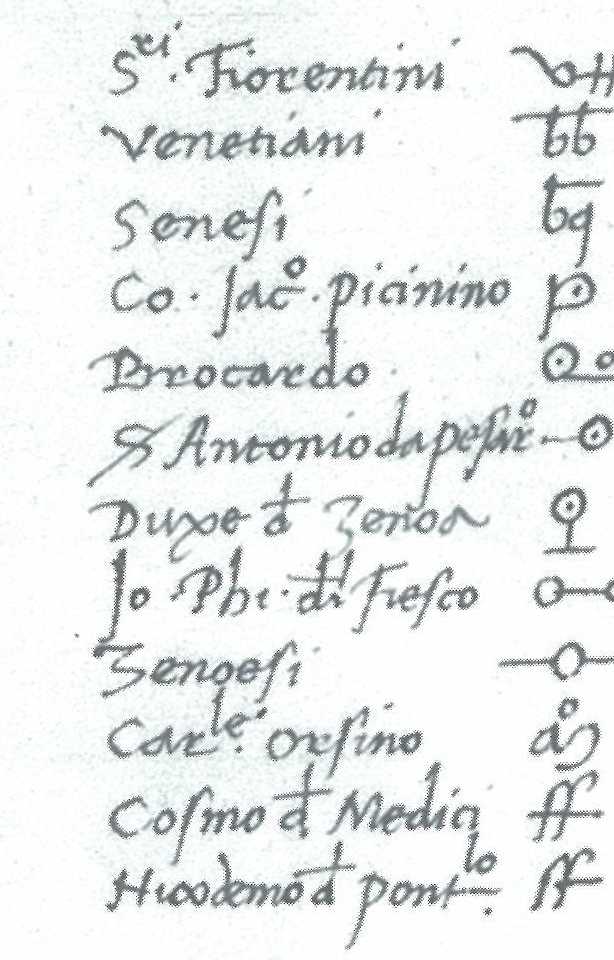 Sri. Fiorentini
Venetiani
Senesi
Co. Jaco. Picinino
Brocardo
S Antonio da pesaro
Duxe d Zenoa
Jo. Phi. di Fiesco
Zenoesi
Carle. Orsino
Cosmo d Medici
Nicodemo d Pontlo.